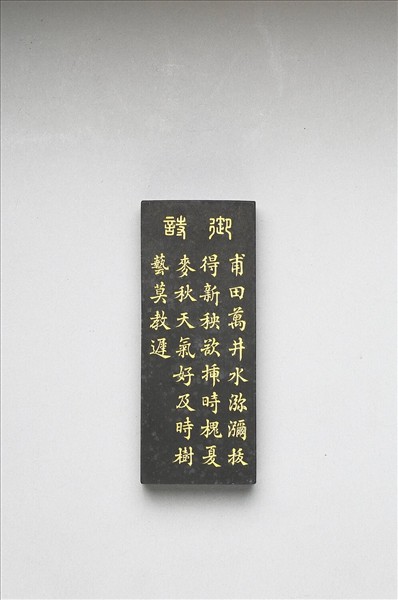 御詩
甫田萬井水瀰瀰拔
得新秧欲揷時槐夏
麥秋天氣好及時樹
藝莫教遲